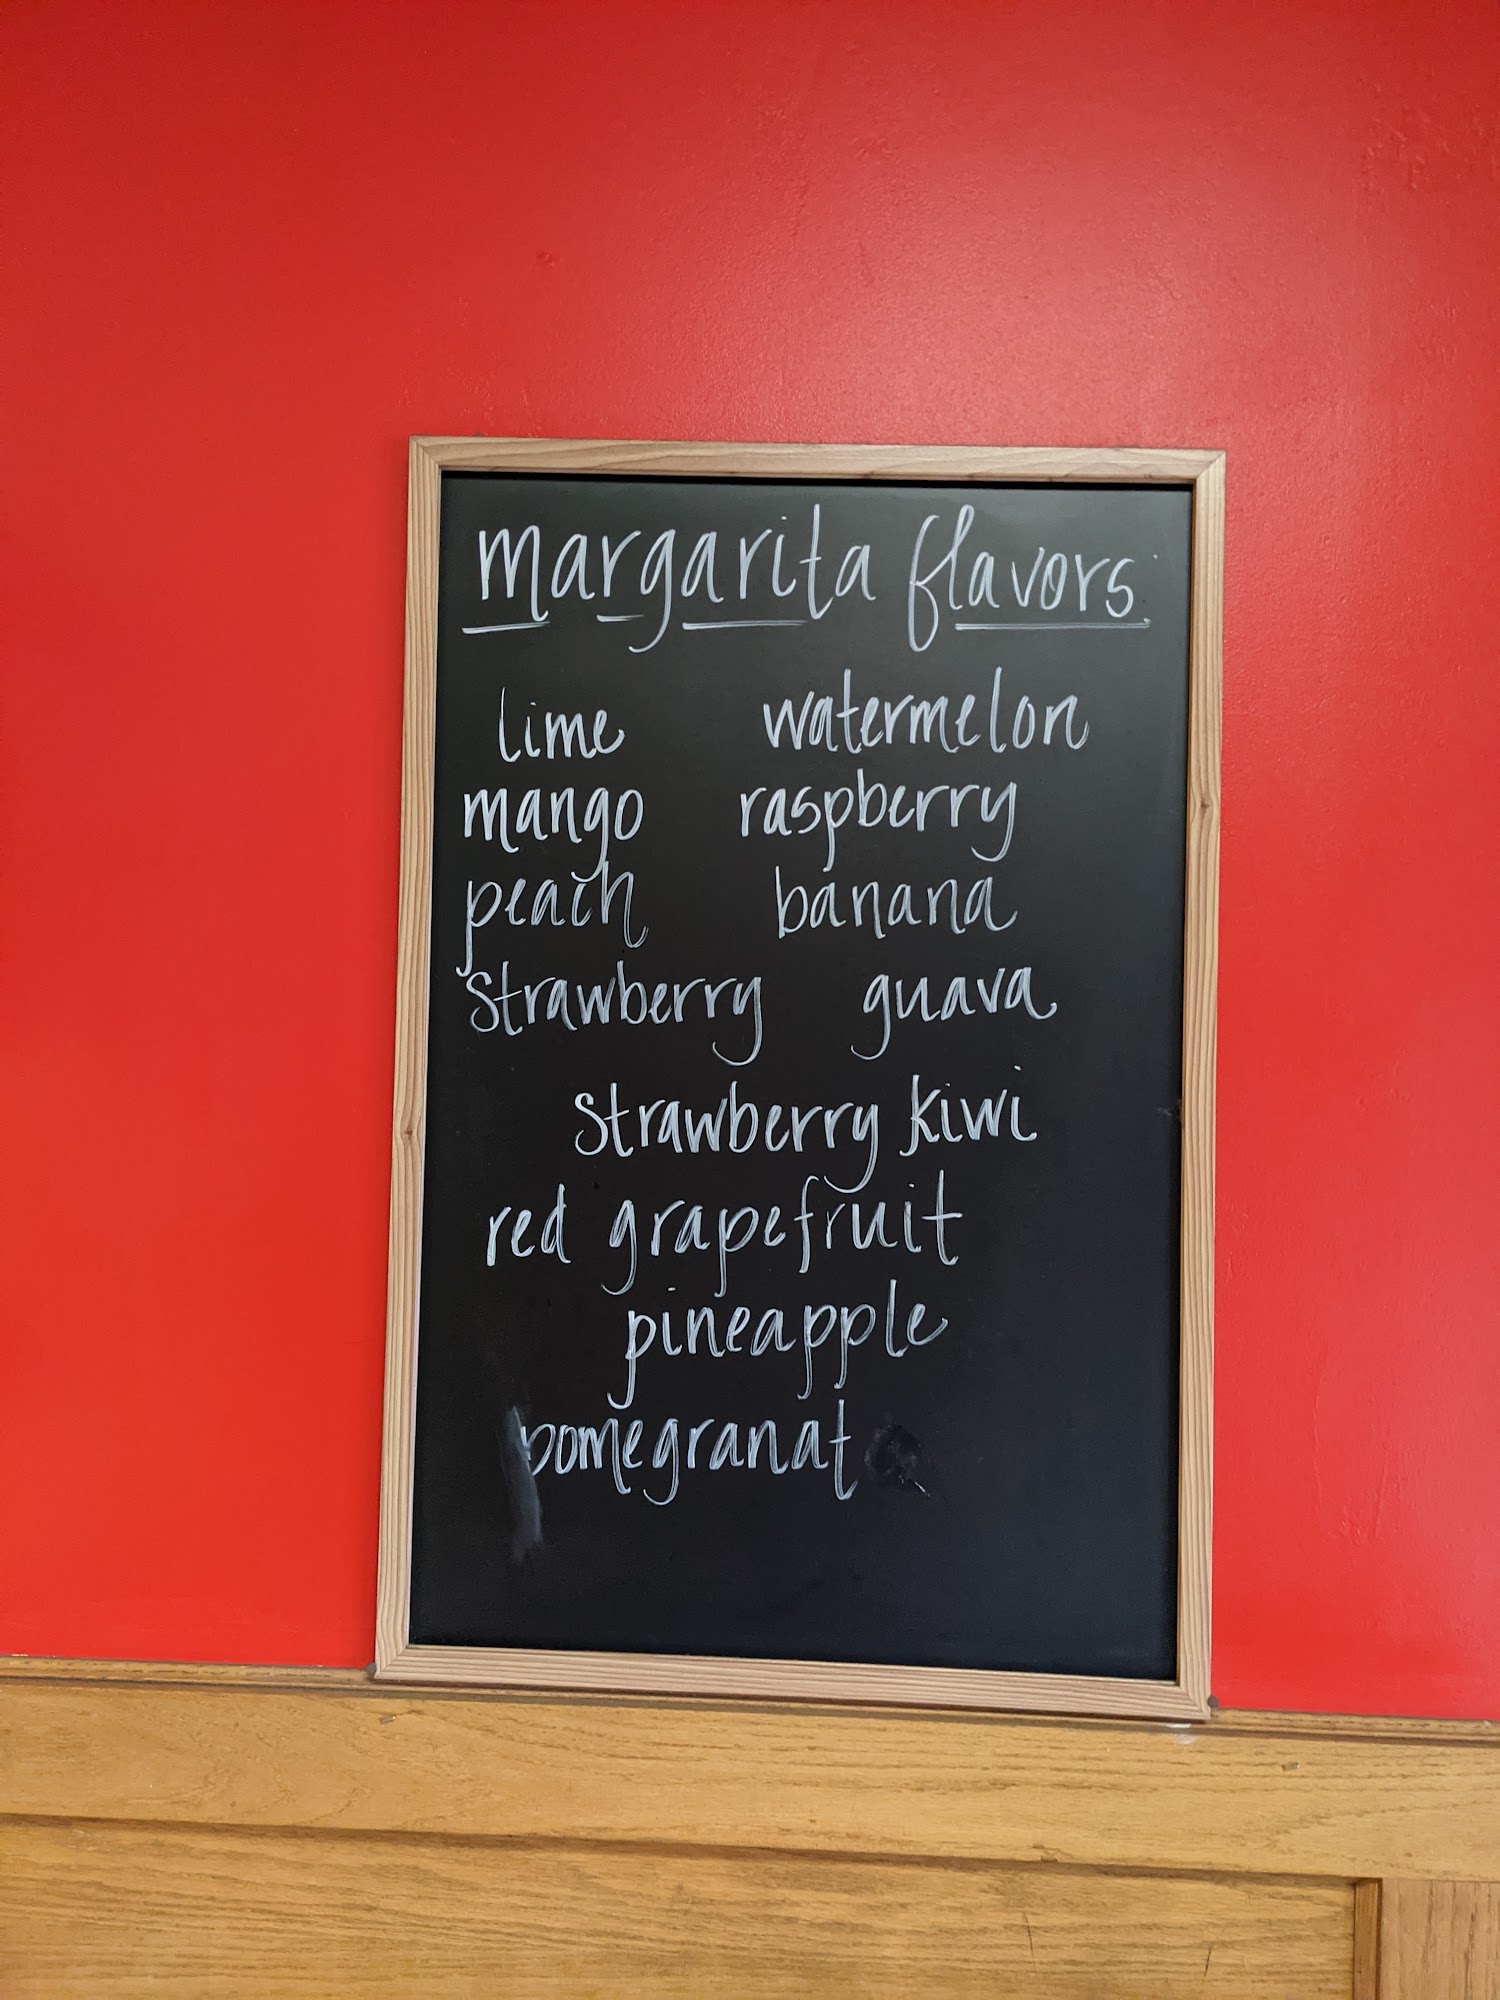 margarita flavors
lime watermelon
mango raspberry
peach banana
strawberry guava
strawberry kiwi
red grapefruit
pineapple
pomegranat